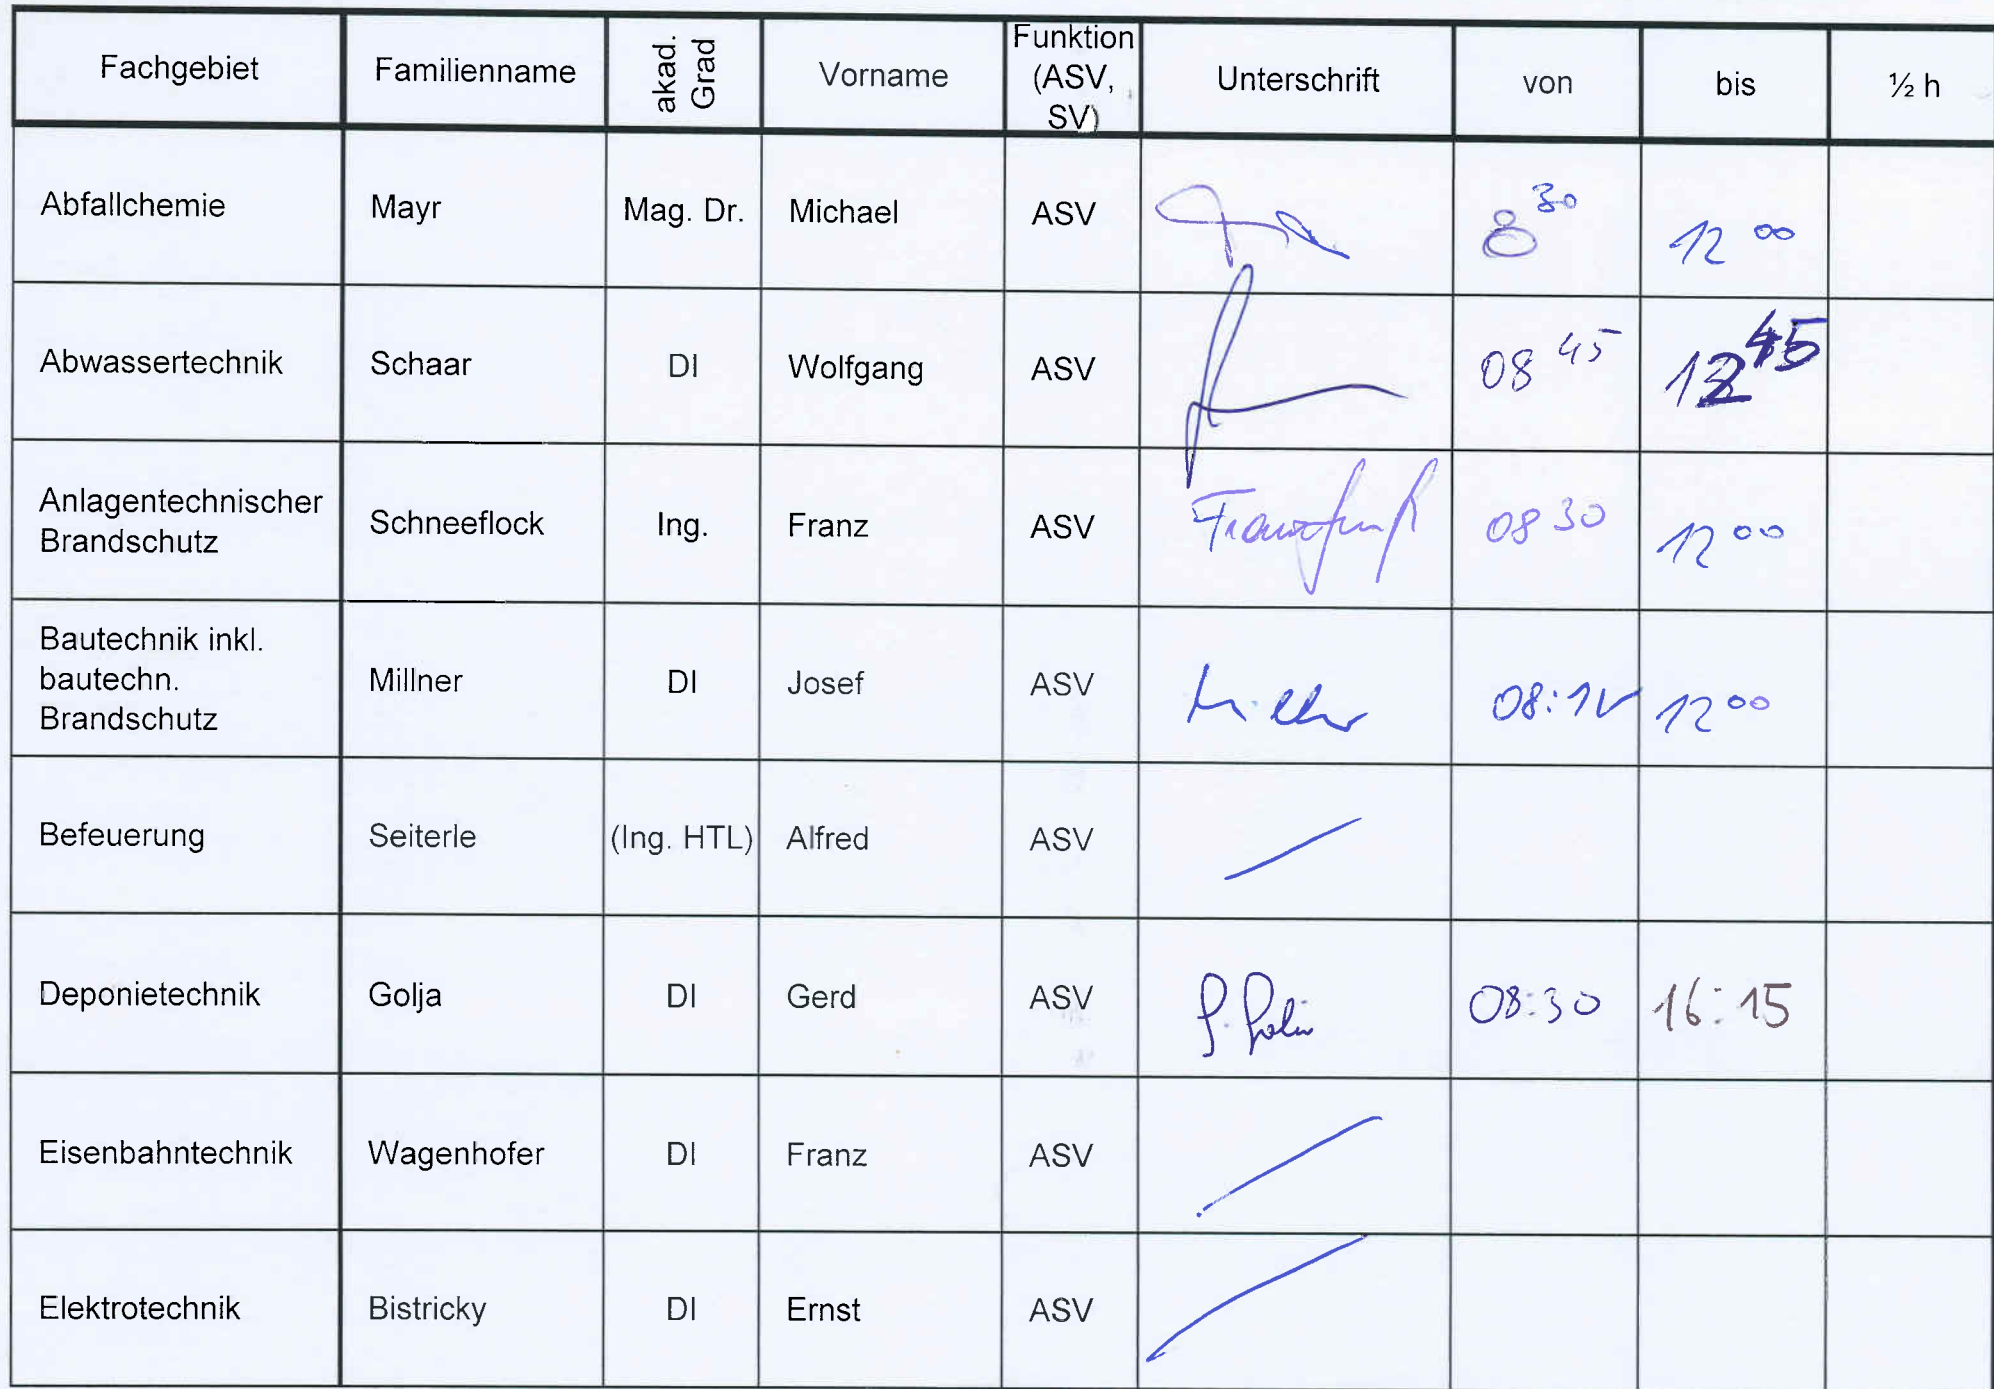 Fachgebiet Familienname akad. Grad Vorname Funktion (ASV, SV) Unterschrift von bis ½ h
Abfallchemie Mayr Mag. Dr. Michael ASV 8 30 12 00
Abwassertechnik Schaar DI Wolfgang ASV 08 45 12 45
Anlagentechnischer
Brandschutz Schneeflock Ing. Franz ASV 08 30 12 00
Bautechnik inkl.
bautechn.
Brandschutz Millner DI Josef ASV 12 00
Befeuerung Seiterle (Ing. HTL) Alfred ASV
Deponietechnik Golja DI Gerd ASV 08:30 16:15
Eisenbahntechnik Wagenhofer DI Franz ASV
Elektrotechnik Bistricky DI Ernst ASV